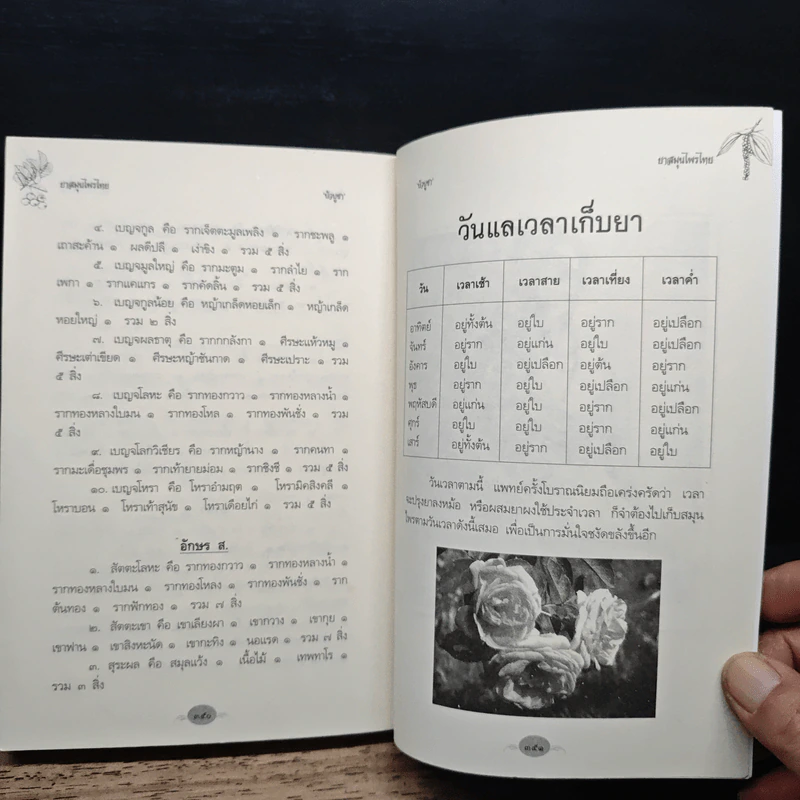 ยาสมุนไพรไทย
๔. เบญจกูล คือ รากเจ็ตตะมูลเพลิง ๑ รากชะพลู ๑
เถาสะค้าน ๑ ผลดีปลี ๑ เง่าขิง ๑ รวม ๕ สิ่ง
๕. เบญจมูลใหญ่ คือ รากมะตูม ๑ รากลำไย ๑ ราก
เพกา ๑ รากแคแกร ๑ รากคัดลิ้น ๑ รวม ๕ สิ่ง
๖. เบญจกูลน้อย คือ หญ้าเกล็ดหอยเล็ก ๑ หญ้าเกล็ด
หอยใหญ่ ๑ รวม ๒ สิ่ง
๗. เบญจผลธาตุ คือ รากกกลังกา ๑ ศีรษะแห้วหมู ๑
ศีรษะเต่าเขียด ๑ ศีรษะหญ้าชันกาด ๑ ศีรษะเปราะ ๑ รวม
๕ สิ่ง
๘. เบญจโลหะ คือ รากทองกวาว ๑ รากทองหลางน้ำ ๑
รากทองหลางใบมน ๑ รากทองโหล ๑ รากทองพันชั่ง ๑ รวม
๕ สิ่ง
๙. เบญจโลกวิเชียร คือ รากหญ้านาง ๑ รากคนทา ๑
รากมะเดื่อชุมพร ๑ รากเท้ายายม่อม ๑ รากชิงชี่ ๑ รวม ๕ สิ่ง
๑๐. เบญจโหรา คือ โหราอำมฤต ๑ โหรามิคสิงคลี ๑
โหราบอน ๑ โหราเท้าสุนัข ๑ โหราเดือยไก่ ๑ รวม ๕ สิ่ง
อักษร ส.
๑. สัตตะโลหะ คือ รากทองกวาว ๑ รากทองหลางน้ำ ๑
รากทองหลางใบมน ๑ รากทองโหลง ๑ รากทองพันชั่ง ๑ ราก
ต้นทอง ๑ รากฟักทอง ๑ รวม ๗ สิ่ง
๒. สัตตะเขา คือ เขาเลียงผา ๑ เขากวาง ๑ เขากุย ๑
เขาฟาน ๑ เขาสิงหะนัด ๑ เขากะทิง ๑ นอแรด ๑ รวม ๗ สิ่ง
๓. สุระผล คือ สมุลแว้ง ๑ เนื้อไม้ ๑ เทพทาโร ๑
รวม ๓ สิ่ง
๓๕๐
ยาสมุนไพรไทย
วันแลเวลาเก็บยา
วัน เวลาเช้า เวลาสาย เวลาเที่ยง เวลาค่ำ
อาทิตย์ อยู่ทั้งต้น อยู่ใบ อยู่ราก อยู่เปลือก
จันทร์ อยู่ราก อยู่แก่น อยู่ใบ อยู่เปลือก
อังคาร อยู่ใบ อยู่เปลือก อยู่ต้น อยู่ราก
พุธ อยู่ราก อยู่ใบ อยู่เปลือก อยู่แก่น
พฤหัสบดี อยู่แก่น อยู่ใบ อยู่ราก อยู่เปลือก
ศุกร์ อยู่ใบ อยู่ใบ อยู่ราก อยู่แก่น
เสาร์ อยู่ทั้งต้น อยู่ราก อยู่เปลือก อยู่ใบ
วันเวลาตามนี้ แพทย์ครั้งโบราณนิยมถือเคร่งครัดว่า เวลา
จะปรุงยาลงหม้อ หรือผสมยาผงใช้ประจำเวลา ก็จำต้องไปเก็บสมุน
ไพรตามวันเวลาดังนี้เสมอ เพื่อเป็นการมั่นใจชงัดขลังขึ้นอีก
๓๕๑